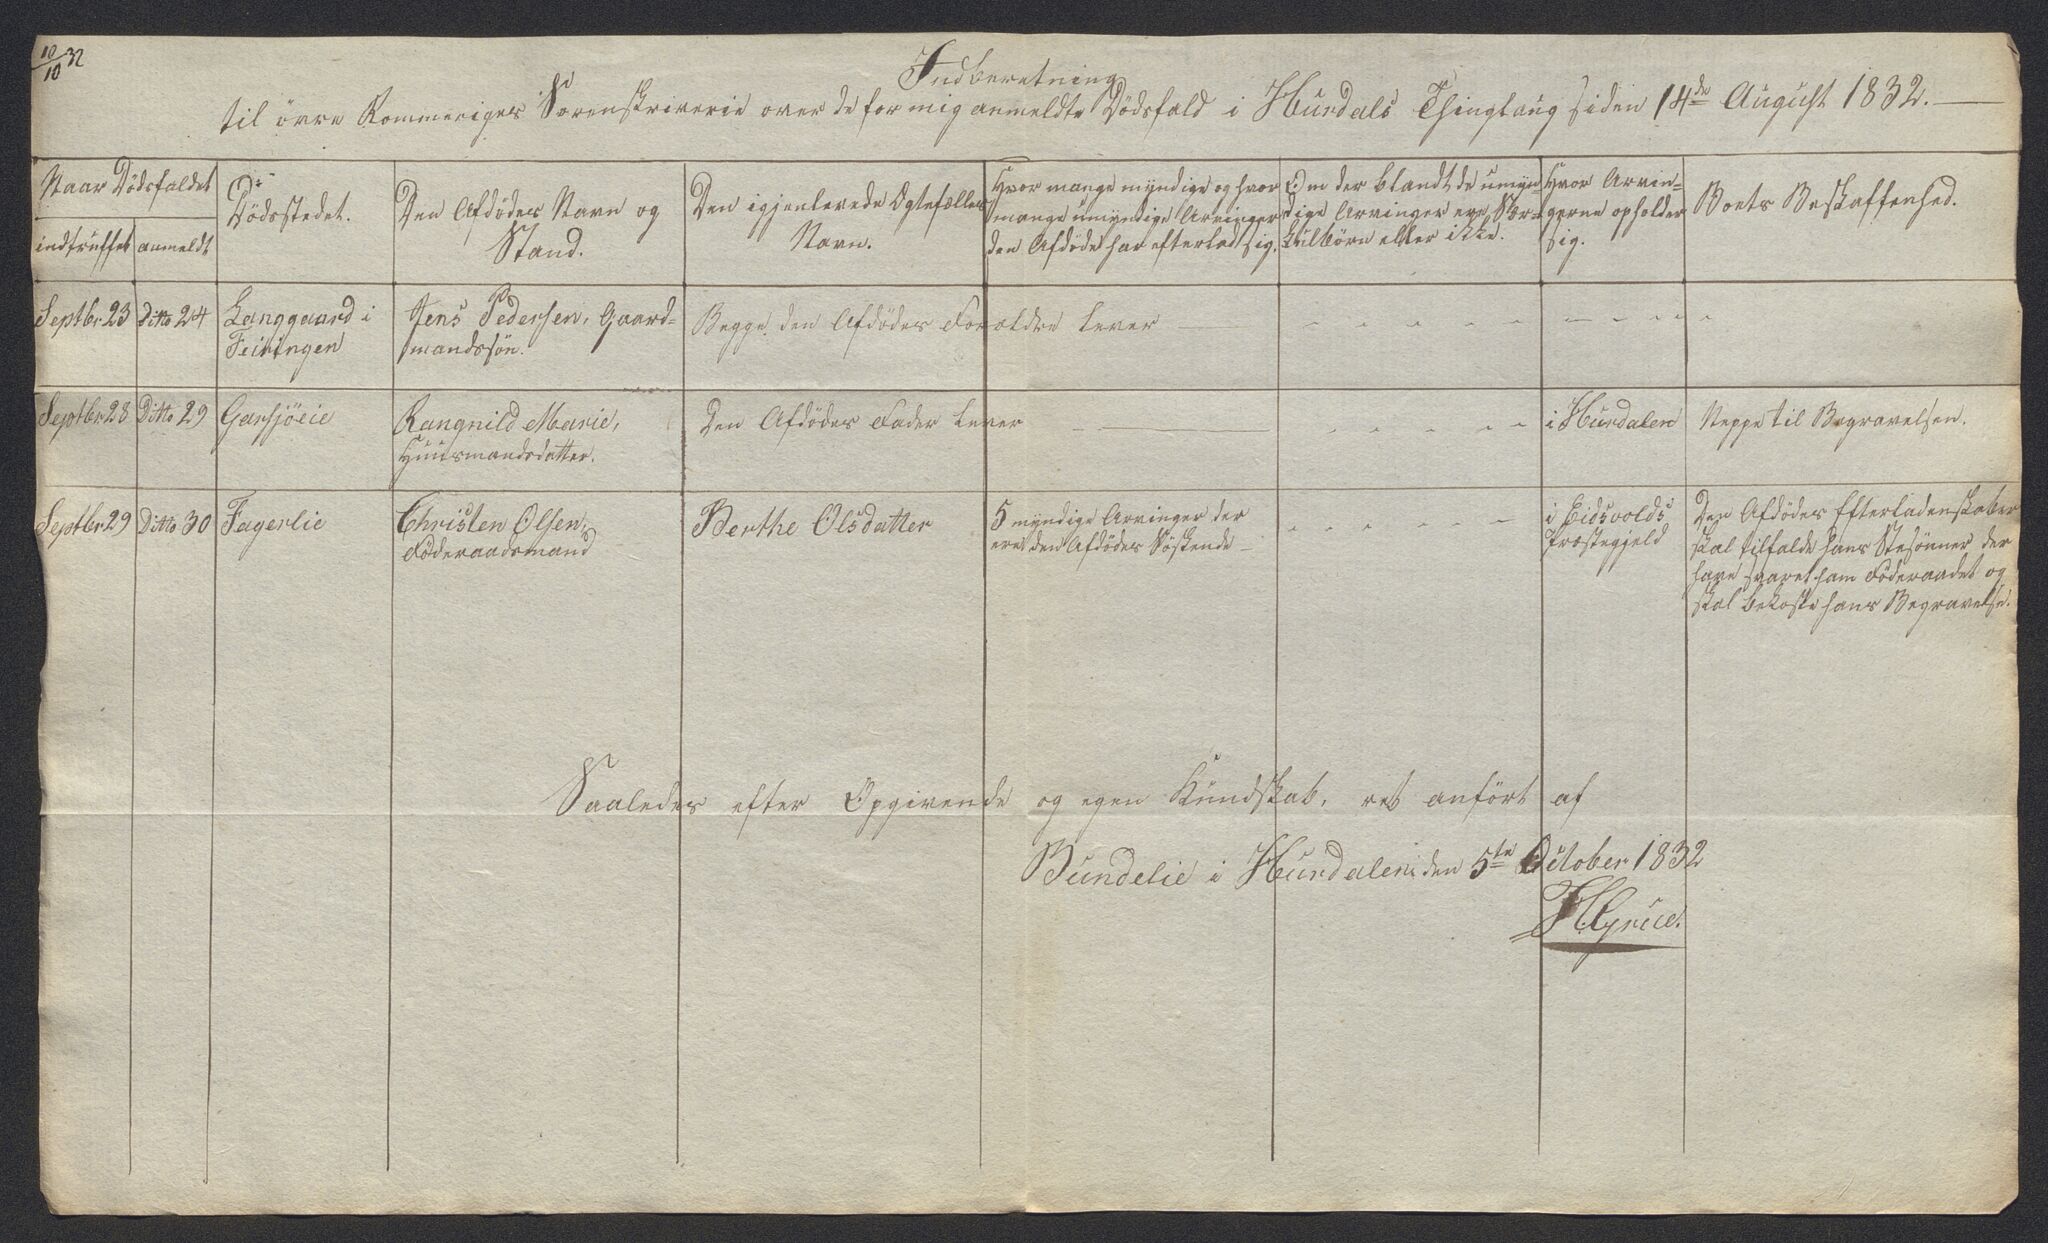 10/10 32
Indberetning
til övre Rommeriges Sorenskriverie over de for mig anmeldte Dödsfald i Hurdals Thinglaug siden 14de August 1832.
Naar Dödsfaldet
indtruffet
anmeldt
Dödsstedet.
Den Afdödes Navn og
Stand.
Den igjenlevede Egtefælles
Navn.
Hvor mange myndige og hvor
mange umyndige Arvinger
den Afdöde har efterladt sig.
Om der blandt de umyn-
dige Arvinger ere Sær-
kulbörn eller ikke.
Hvor Arvin-
gerne opholder
sig.
Boets Beskaffenhed.
Septbr 23
Ditto 24
Langgaard i
Feiringen
Jens Pedersen, Gaard-
mandssön.
Begge den Afdödes Forældre lever
Septbr 28
Ditto 29
Garsjöeie
Rangnild Marie,
Huusmandsdatter.
Den Afdödes Fader lever
i Hurdalen
Neppe til Begravelsen.
Septbr 29
Ditto 30
Fagerlie
Christen Olsen,
Föderaadsmand
Berthe Olsdatter
5 myndige Arvinger der
ere den Afdödes Söskende
i Eidsvolds
Præstegjeld
Den Afdödes Efterladenskaber
skal tilfalde hans Stesönner der
have svaret ham Föderaadet og
skal bekoste hans Begravelse.
Saaledes efter Opgivende og egen Kundskab, ret anfört af
Bundelie i Hurdalen den 5te October 1832